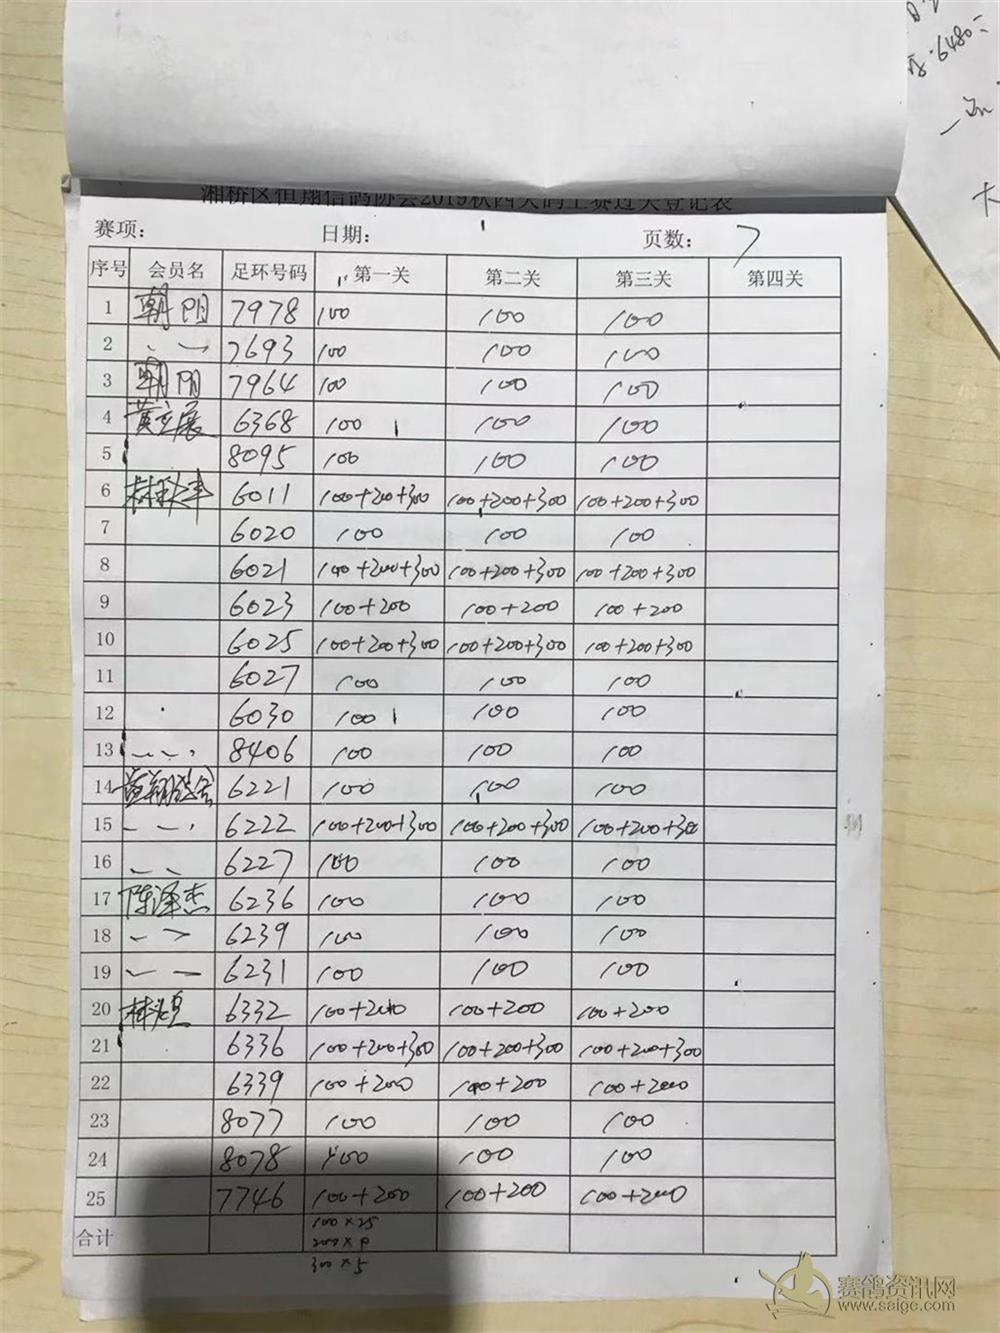 湘桥区恒翔信鸽协会2019秋四关鸽王赛过关登记表
赛项: 日期: 页数: 7
序号 会员名 足环号码 第一关 第二关 第三关 第四关
1 朝阳 7978 100 100 100
2 〃 7693 100 100 100
3 朝阳 7964 100 100 100
4 黄立展 6368 100 100 100
5 8095 100 100 100
6 6011 100+200+300 100+200+300 100+200+300
7 6020 100 100 100
8 6021 100+200+300 100+200+300 100+200+300
9 6023 100+200 100+200 100+200
10 6025 100+200+300 100+200+300 100+200+300
11 6027 100 100 100
12 6030 100 100 100
13 〃 8406 100 100 100
14 6221 100 100 100
15 〃 6222 100+200+300 100+200+300 100+200+300
16 〃 6227 100 100 100
17 陈泽杰 6236 100 100 100
18 〃 6239 100 100 100
19 〃 6231 100 100 100
20 6332 100+200 100+200 100+200
21 6336 100+200+300 100+200+300 100+200+300
22 6339 100+200 100+200 100+200
23 8077 100 100 100
24 8078 100 100 100
25 7746 100+200 100+200 100+200
合计 100×25
200×9
300×5
6480
赛鸽资讯网
www.saige.com